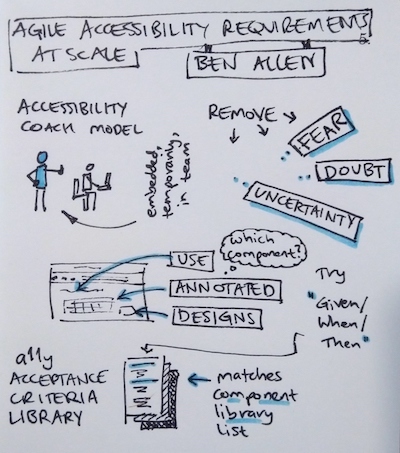 AGILE ACCESSIBILITY REQUIREMENTS
AT SCALE
BEN ALLEN
ACCESSIBILITY
COACH MODEL
embedded,
temporarily,
in team
REMOVE
FEAR
DOUBT
UNCERTAINTY
which
component?
USE
ANNOTATED
DESIGNS
Try
"Given/
When/
Then"
a11y
ACCEPTANCE
CRITERIA
LIBRARY
matches
component
library
list